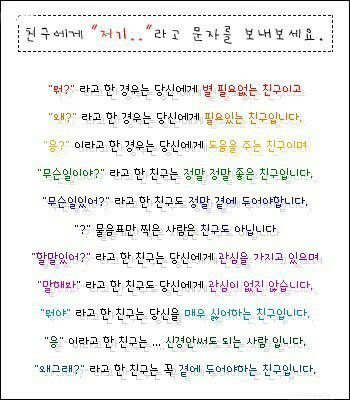 친구에게 "저기.."라고 문자를 보내보세요.
"뭐?" 라고 한 경우는 당신에게 별 필요없는 친구이고
"왜?" 라고 한 경우는 당신에게 필요있는 친구입니다.
"응?" 이라고 한 경우는 당신에게 도움을 주는 친구이며
"무슨일이야?" 라고 한 친구는 정말 정말 좋은 친구입니다,
"무슨일있어?" 라고 한 친구도 정말 곁에 두어야합니다,
"?" 물음표만 찍은 사람은 친구도 아닙니다.
"할말있어?" 라고 한 친구는 당신에게 관심을 가지고 있으며
"말해봐" 라고 한 친구도 당신에게 관심이 없진 않습니다,
"뭐야" 라고 한 친구는 당신을 매우 싫어하는 친구입니다,
"응" 이라고 한 친구는 ... 신경안써도 되는 사람 입니다,
"왜그래?" 라고 한 친구는 꼭 곁에 두어야하는 친구입니다,